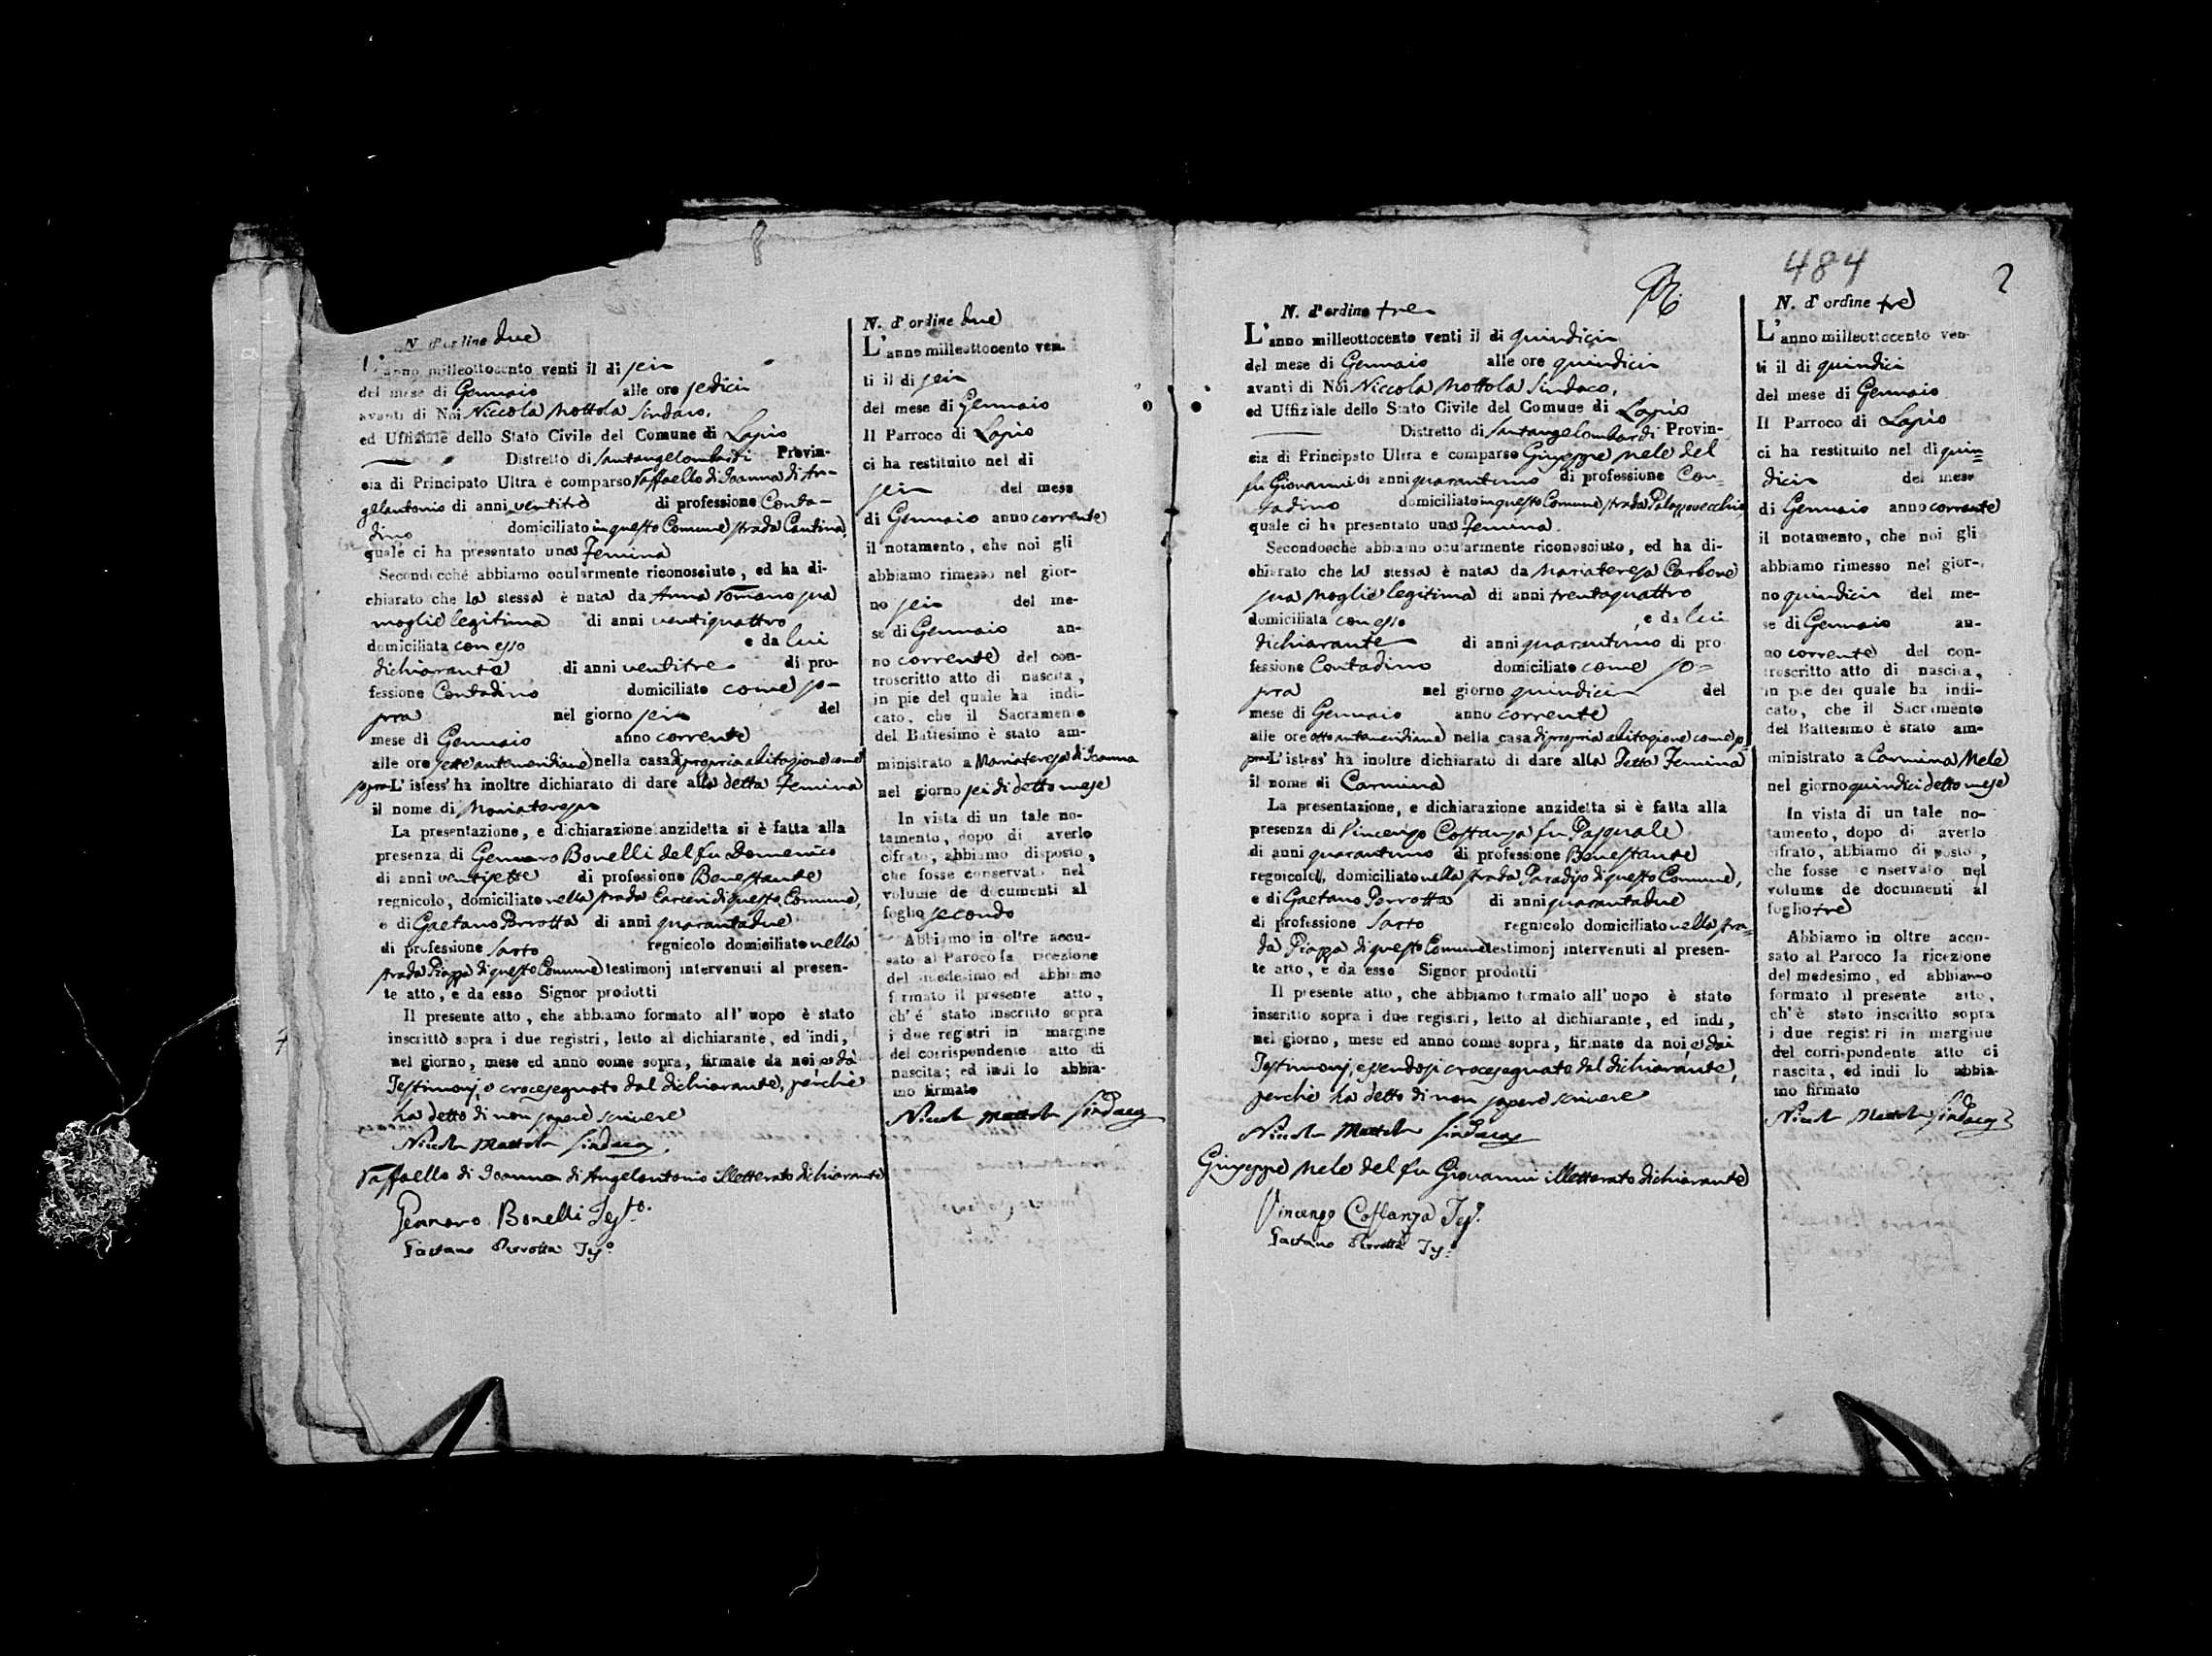 N. d'ordine due
L'anno milleottocento venti il di sei
del mese di Gennaio alle ore sedici
avanti di Noi Niccola Mottola Sindaco,
ed Uffiziale dello Stato Civile del Comune di Lapio
Distretto di Santangelombardi Provin-
cia di Principato Ultra è comparso Raffaello di Joanna di An-
gelantonio di anni ventitrè di professione Conta-
dino domiciliato in questo Comune strada Cantina,
quale ci ha presentato una Femina
Secondocchè abbiamo ocularmente riconosciuto, ed ha di-
chiarato che la stessa è nata da Anna Romano sua
moglie legitima di anni ventiquattro
domiciliata con esso e da lui
dichiarante di anni ventitre di pro-
fessione Contadino domiciliato come so-
pra nel giorno sei del
mese di Gennaio anno corrente
alle ore sette antemeridiane nella casa di propria abitazione come
sopra L'istess' ha inoltre dichiarato di dare alla detta Femina
il nome di Mariateresa
La presentazione, e dichiarazione anzidetta si è fatta alla
presenza di Gennaro Bonelli del fu Domenico
di anni ventisette di professione Benestante
regnicolo, domiciliato nella strada Carceri di questo Comune,
e di Gaetano Perrotta di anni quarantadue
di professione Sarto regnicolo domiciliato nella
strada Piazza di questo Comune testimonj intervenuti al presen-
te atto, e da esso Signor prodotti
Il presente atto, che abbiamo formato all'uopo è stato
inscritto sopra i due registri, letto al dichiarante, ed indi,
nel giorno, mese ed anno come sopra, firmato da noi, e da
Testimonj, e crocesegnato dal dichiarante, perchè
ha detto di non sapere scrivere
Nicola Mottola Sindaco
Raffaello di Joanna di Angelantonio illetterato dichiarante
Gennaro Bonelli Test.o
Gaetano Perrotta Tes.o
N. d'ordine due
L'anno milleottocento ven-
ti il di sei
del mese di Gennaio
Il Parroco di Lapio
ci ha restituito nel di
sei del mese
di Gennaio anno corrente
il notamento, che noi gli
abbiamo rimesso nel gior-
no sei del me-
se di Gennaio an-
no corrente del con-
troscritto atto di nascita,
in piè del quale ha indi-
cato, che il Sacramento
del Battesimo è stato am-
ministrato a Mariateresa di Joanna
nel giorno sei di detto mese
In vista di un tale no-
tamento, dopo di averlo
cifrato, abbiamo disposto,
che fosse conservato nel
volume de documenti al
foglio secondo
Abbiamo in oltre accu-
sato al Paroco la ricezione
del medesimo ed abbiamo
formato il presente atto,
ch'è stato inscritto sopra
i due registri in margine
del corrispondente atto di
nascita; ed indi lo abbia-
mo firmato
Nicola Mottola Sindaco
484
2
N. d'ordine tre
L'anno milleottocento venti il di quindici
del mese di Gennaio alle ore quindici
avanti di Noi Niccola Mottola Sindaco,
ed Uffiziale dello Stato Civile del Comune di Lapio
Distretto di Santangelombardi Provin-
cia di Principato Ultra è comparso Giuseppe Mele del
fu Giovanni di anni quarantuno di professione Con-
tadino domiciliato in questo Comune strada Palazzovecchio
quale ci ha presentato una Femina.
Secondocchè abbiamo ocularmente riconosciuto, ed ha di-
chiarato che la stessa è nata da Mariateresa Carbone
sua Moglie legitima di anni trentaquattro
domiciliata con esso e da lui
dichiarante di anni quarantuno di pro
fessione Contadino domiciliato come so=
pra nel giorno quindici del
mese di Gennaio anno corrente
alle ore otto antemeridiane nella casa di propria abitazione come so
pra L'istess' ha inoltre dichiarato di dare alla detta Femina
il nome di Carmina
La presentazione, e dichiarazione anzidetta si è fatta alla
presenza di Vincenzo Costanza fu Pasquale
di anni quarantuno di professione Benestante
regnicolo, domiciliato nella strada Paradiso di questo Comune,
e di Gaetano Perrotta di anni quarantadue
di professione Sarto regnicolo domiciliato nella stra=
da Piazza di questo Comune testimonj intervenuti al presen-
te atto, e da esso Signor prodotti
Il presente atto, che abbiamo formato all'uopo è stato
inscritto sopra i due registri, letto al dichiarante, ed indi,
nel giorno, mese ed anno come sopra, firmato da noi, e dai
Testimonj, essendosi crocesegnato dal dichiarante,
perchè ha detto di non sapere scrivere
Nicola Mottola Sindaco
Giuseppe Mele del fu Giovanni illetterato dichiarante
Vincenzo Costanza Tes.o
Gaetano Perrotta Tes.o
N. d'ordine tre
L'anno milleottocento ven-
ti il di quindici
del mese di Gennaio
Il Parroco di Lapio
ci ha restituito nel di quin=
dici del mese
di Gennaio anno corrente
il notamento, che noi gli
abbiamo rimesso nel gior-
no quindici del me-
se di Gennaio an-
no corrente del con-
troscritto atto di nascita,
in piè del quale ha indi-
cato, che il Sacramento
del Battesimo è stato am-
ministrato a Carmina Mele
nel giorno quindici detto mese
In vista di un tale no-
tamento, dopo di averlo
cifrato, abbiamo disposto,
che fosse conservato nel
volume de documenti al
foglio tre
Abbiamo in oltre accu-
sato al Paroco la ricezione
del medesimo, ed abbiamo
formato il presente atto,
ch'è stato inscritto sopra
i due registri in margine
del corrispondente atto di
nascita, ed indi lo abbia-
mo firmato
Nicola Mottola Sindaco